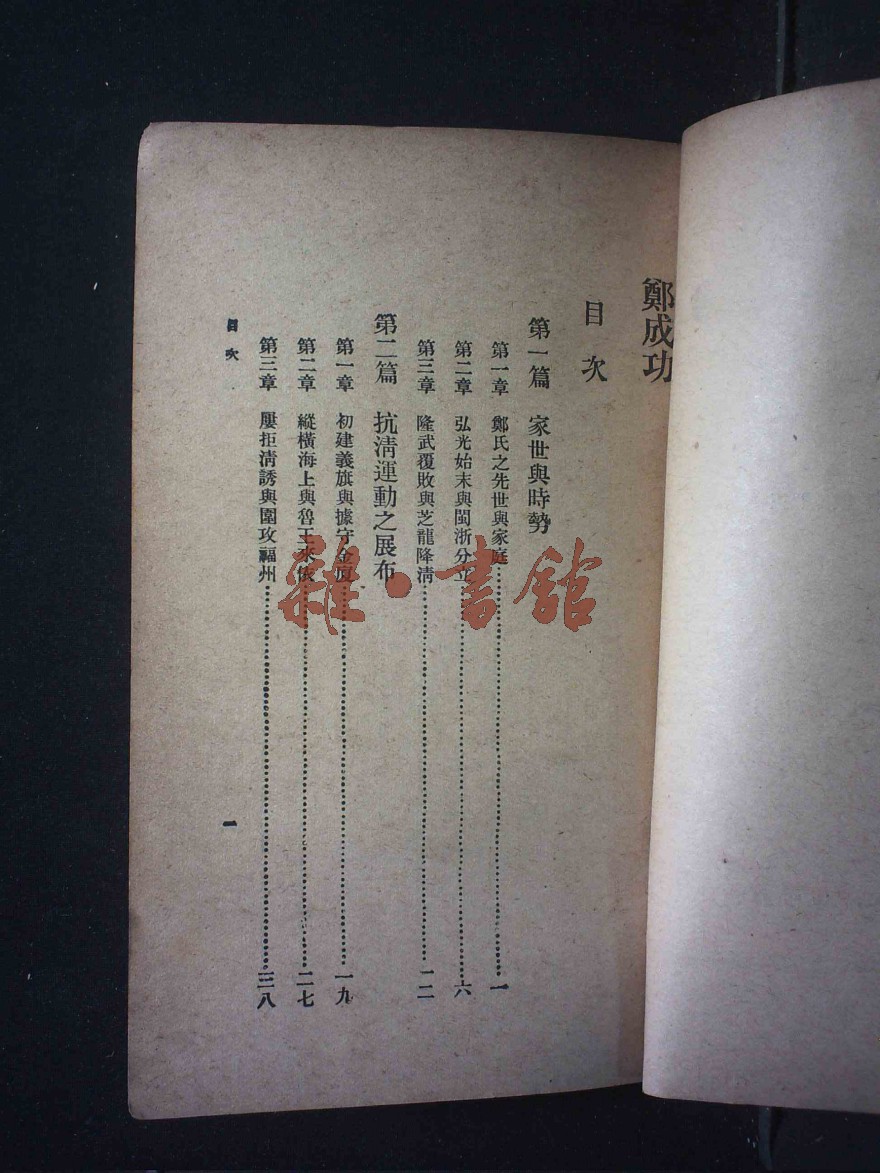 鄭成功
目次
第一篇 家世與時勢
第一章 鄭氏之先世與家庭 一
第二章 弘光始末與閩浙分立 六
第三章 隆武覆敗與芝龍降清 一二
第二篇 抗清運動之展布
第一章 初建義旗與據守金廈 一九
第二章 縱橫海上與魯王來依 二七
第三章 屢拒清誘與圍攻福州 三八
目次
一
雜·書館